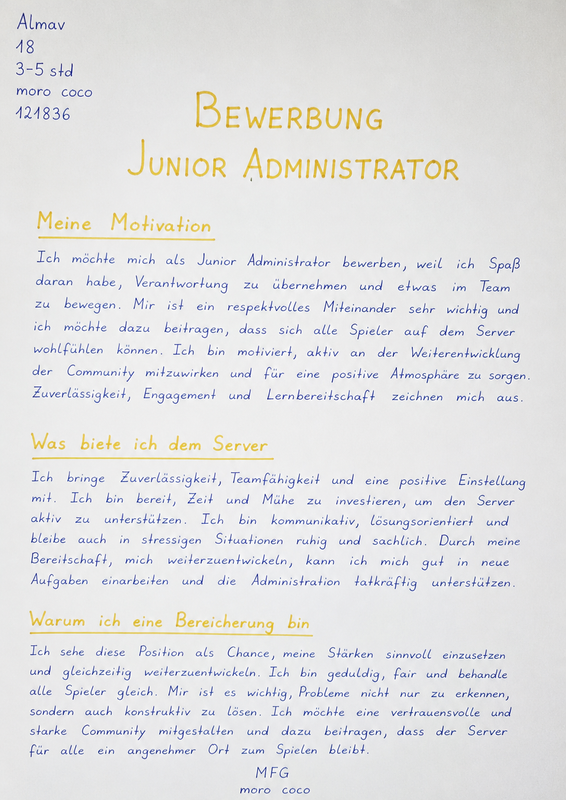 Almav
18
3-5 std
moro coco
121836
BEWERBUNG
JUNIOR ADMINISTRATOR
Meine Motivation
Ich möchte mich als Junior Administrator bewerben, weil ich Spaß
daran habe, Verantwortung zu übernehmen und etwas im Team
zu bewegen. Mir ist ein respektvolles Miteinander sehr wichtig und
ich möchte dazu beitragen, dass sich alle Spieler auf dem Server
wohlfühlen können. Ich bin motiviert, aktiv an der Weiterentwicklung
der Community mitzuwirken und für eine positive Atmosphäre zu sorgen.
Zuverlässigkeit, Engagement und Lernbereitschaft zeichnen mich aus.
Was biete ich dem Server
Ich bringe Zuverlässigkeit, Teamfähigkeit und eine positive Einstellung
mit. Ich bin bereit, Zeit und Mühe zu investieren, um den Server
aktiv zu unterstützen. Ich bin kommunikativ, lösungsorientiert und
bleibe auch in stressigen Situationen ruhig und sachlich. Durch meine
Bereitschaft, mich weiterzuentwickeln, kann ich mich gut in neue
Aufgaben einarbeiten und die Administration tatkräftig unterstützen.
Warum ich eine Bereicherung bin
Ich sehe diese Position als Chance, meine Stärken sinnvoll einzusetzen
und gleichzeitig weiterzuentwickeln. Ich bin geduldig, fair und behandle
alle Spieler gleich. Mir ist es wichtig, Probleme nicht nur zu erkennen,
sondern auch konstruktiv zu lösen. Ich möchte eine vertrauensvolle und
starke Community mitgestalten und dazu beitragen, dass der Server
für alle ein angenehmer Ort zum Spielen bleibt.
MFG
moro coco